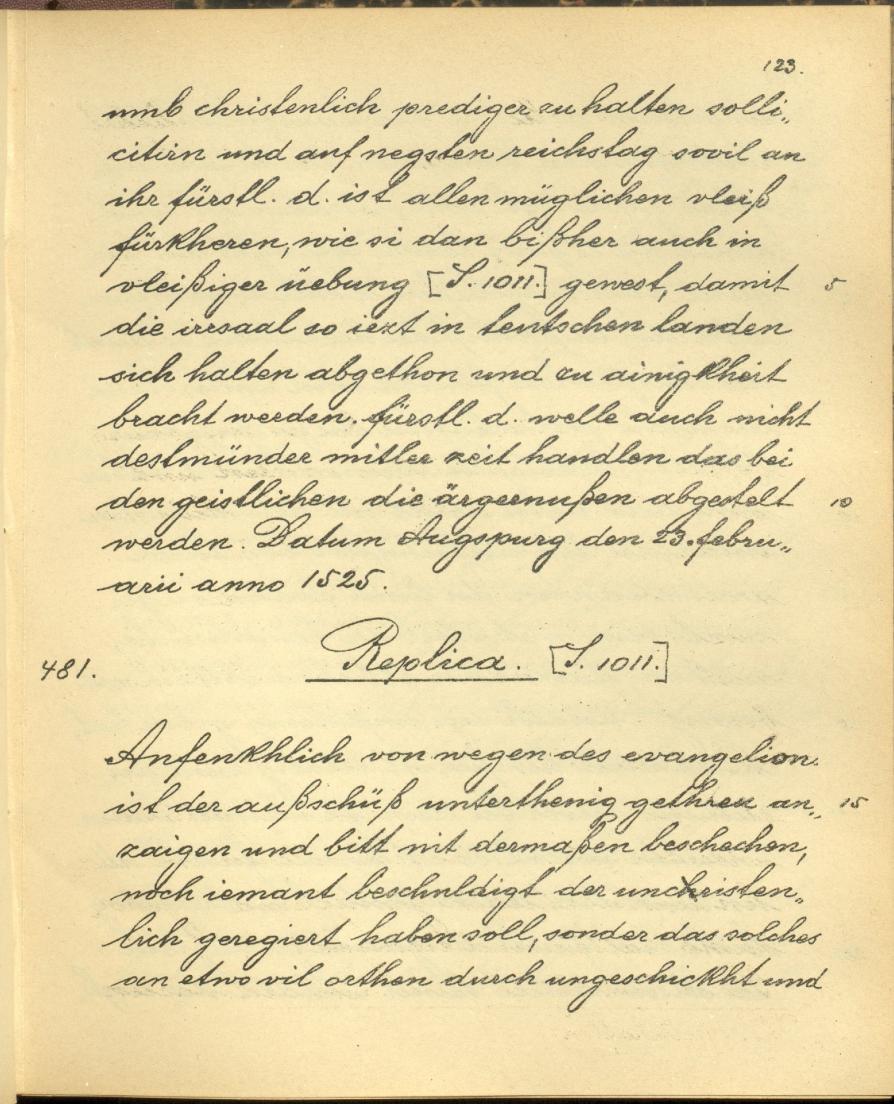 123.
umb christenlich prediger zu halten solli„
citirn und auf negsten reichstag sovil an
ihr fürstl. d. ist allen müglichen vleiß
fürkheren, wie si dan bißher auch in
vleißiger üebung [S. 1011.] gewest, damit 5
die irrsaal so iezt in teutschen landen
sich halten abgethon und zu ainigkheit
bracht werden. fürstl. d. welle auch nicht
destmünder mitler zeit handlen das bei
den geistlichen die ärgernußen abgestelt 10
werden. Datum Augspurg den 23. febru„
arii anno 1525.
481. Replica. [S. 1011.]
Anfenkhlich von wegen des evangelion.
ist der außschüß unterthenig gethreu an„ 15
zaigen und bitt nit dermaßen beschechen,
noch iemant beschuldigt der unchristen„
lich geregiert haben soll, sonder das solches
an etwo vil orthen durch ungeschickht und